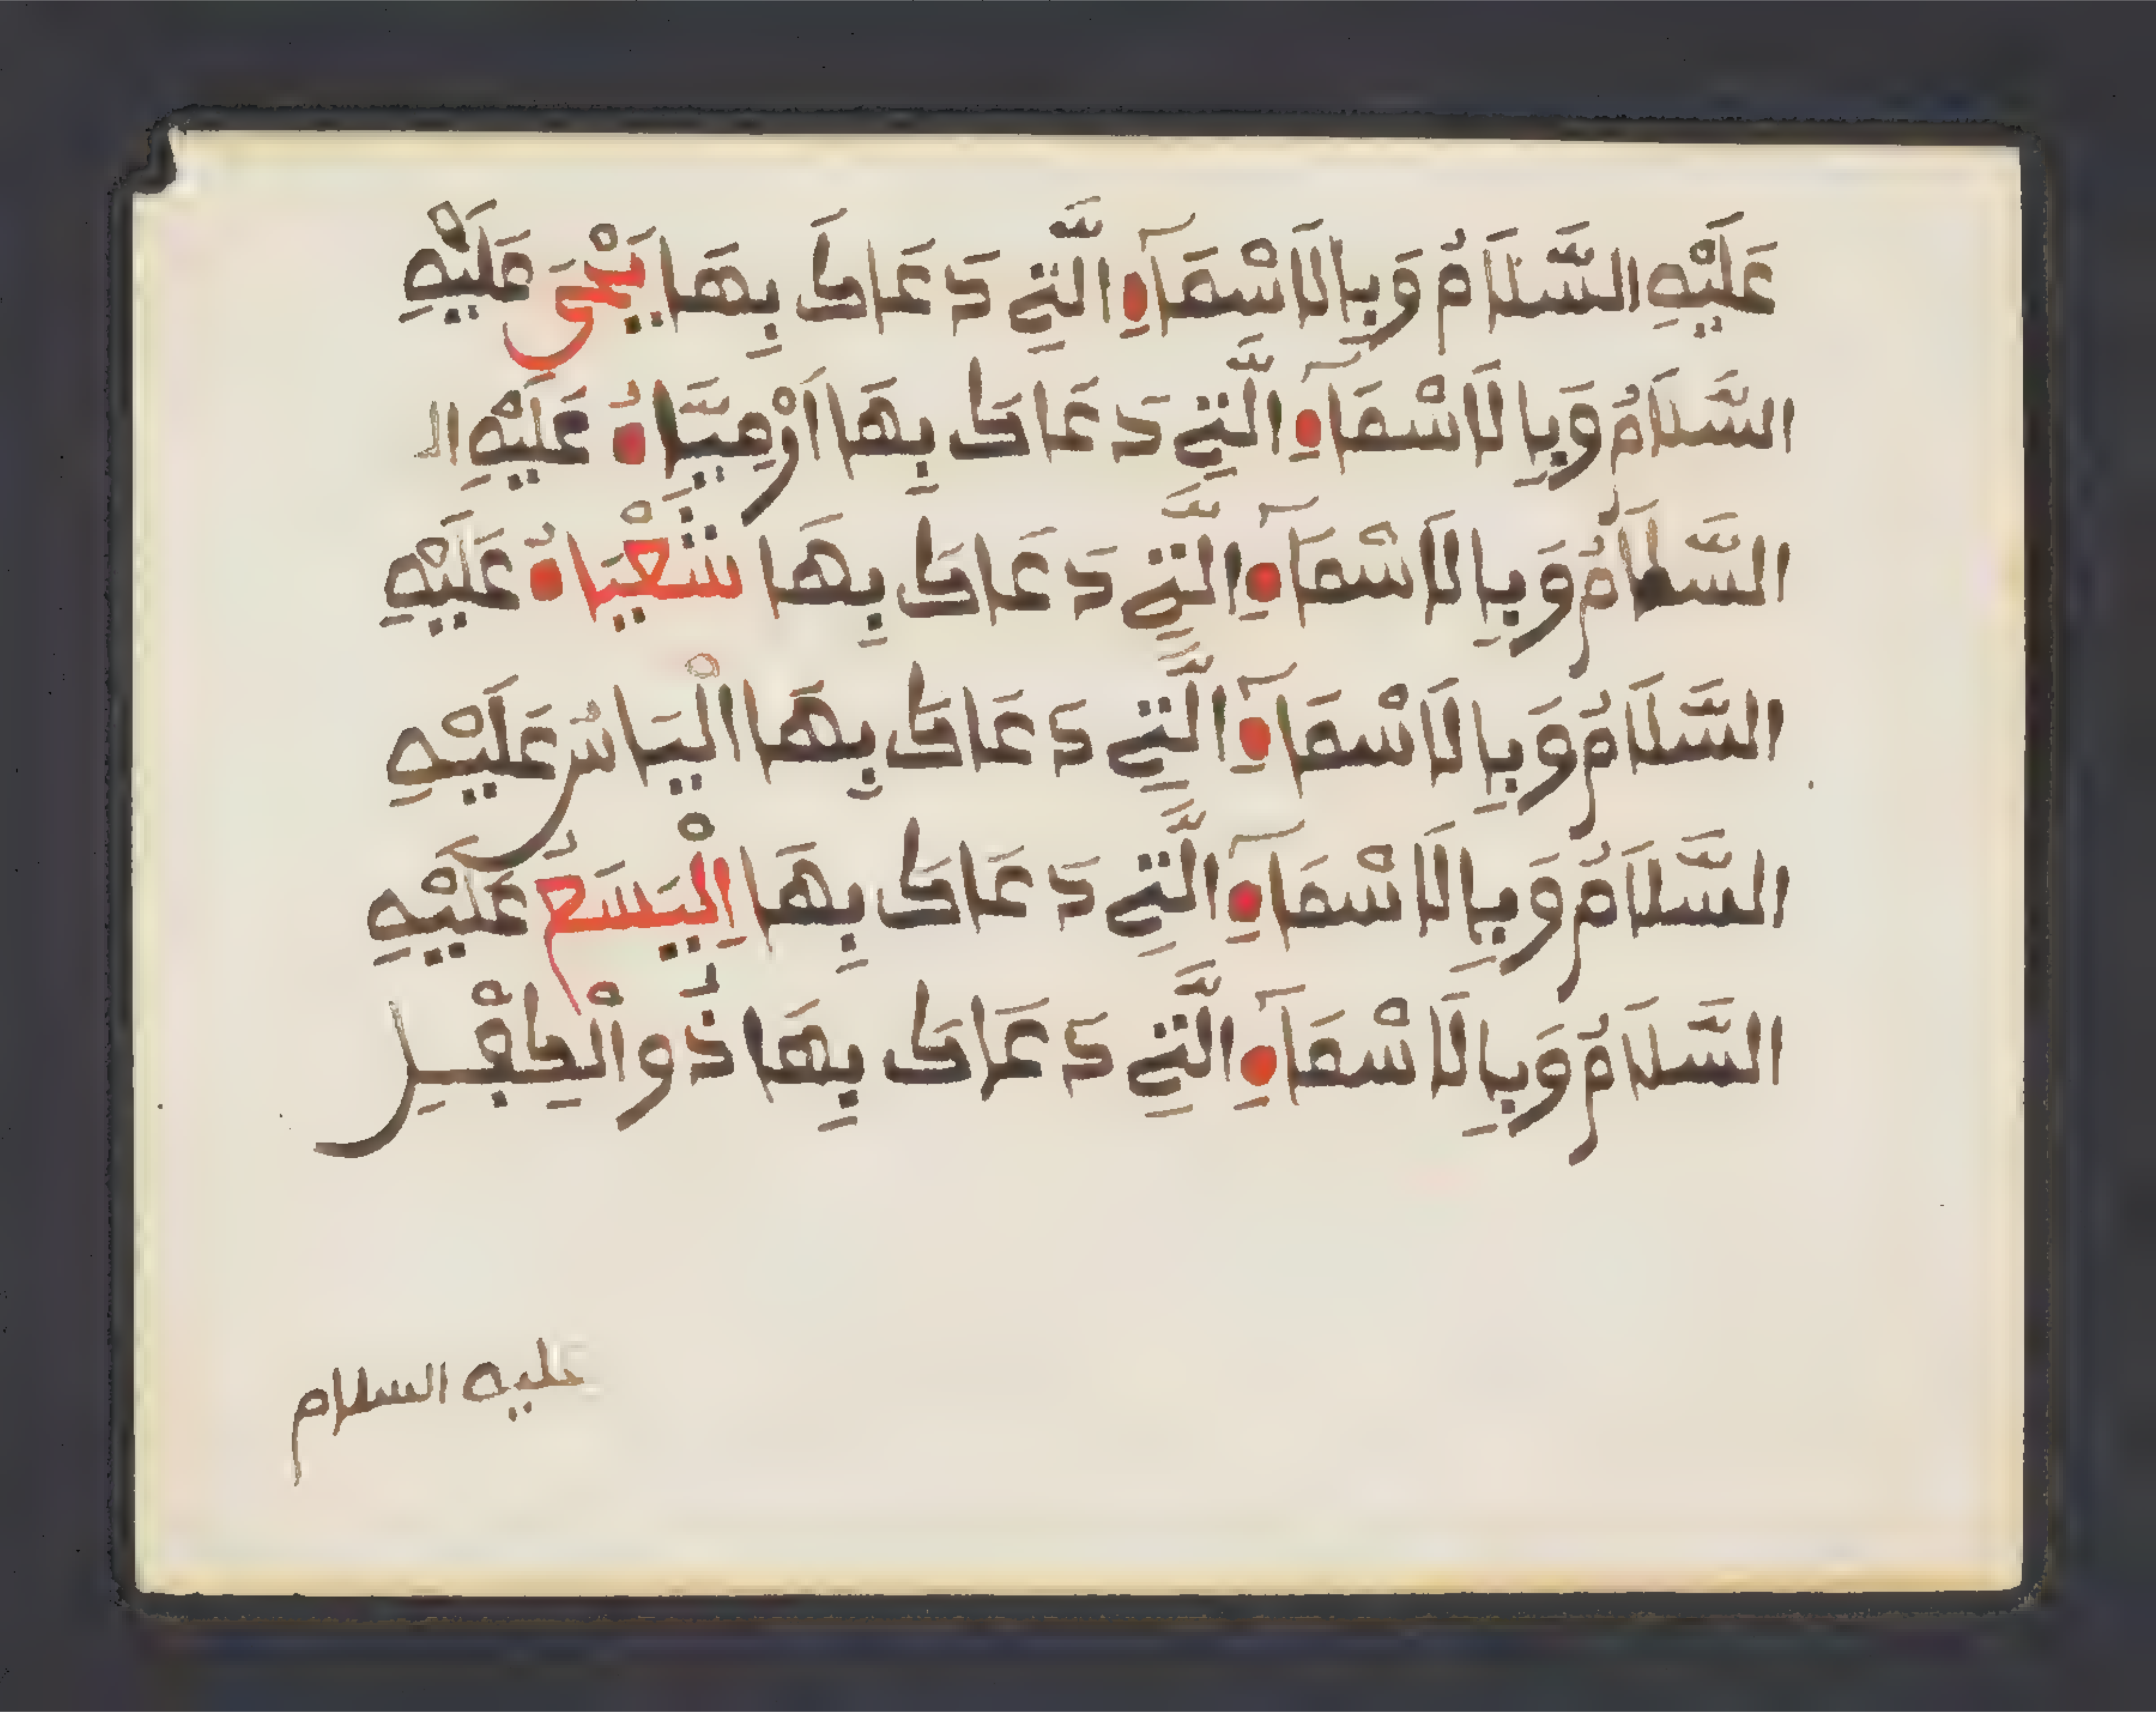 عَلَيْهِ السَّلَامُ وَبِالَاسْمَآءِ الَّتِي دَعَاكَ بِهَا يَحْيَى عَلَيْهِ
السَّلَامُ وَبِالَاسْمَآءِ الَّتِي دَعَاكَ بِهَا أَرْمِيَّاءُ عَلَيْهِ الـ
السَّلَامُ وَبِالَاسْمَآءِ الَّتِي دَعَاكَ بِهَا شَعْيَاءُ عَلَيْهِ
السَّلَامُ وَبِالَاسْمَآءِ الَّتِي دَعَاكَ بِهَا الْيَاسُ عَلَيْهِ
السَّلَامُ وَبِالَاسْمَآءِ الَّتِي دَعَاكَ بِهَا الْيَسَعُ عَلَيْهِ
السَّلَامُ وَبِالَاسْمَآءِ الَّتِي دَعَاكَ بِهَا ذُو الْكِفْلِ
عليه السلام